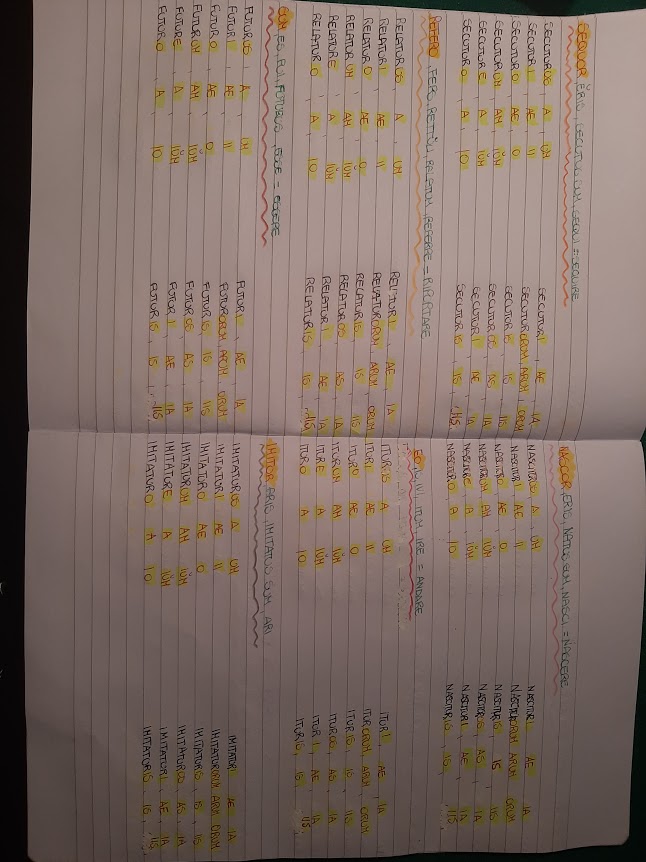 SEQUOR, ĔRIS, SECUTUS SUM, SEQUI = SEGUIRE
SECUTUR US A UM SECUTUR I AE IA
SECUTUR I AE II SECUTUR ORUM, ARUM, ORUM
SECUTUR O AE O SECUTUR IS IS IIS
SECUTUR UM AM IŬM SECUTUR OS AS IA
SECUTUR E A IŬM SECUTUR I AE IA
SECUTUR O, A, IO SECUTUR IS, IS, IIS
REFERO, FERS,
= RIPORTARE
RELATUR US A UM RELATUR I AE IA
RELATUR I AE II RELATUR ORUM, ARUM, ORUM
RELATUR O AE O RELATUR IS IS IIS
RELATUR UM AM IŬM RELATUR OS AS, IA
RELATUR E A IŬM RELATUR I AE IA
RELATUR O A IO RELATUR IS, IS, IIS
SUM, ES, FUI, FUTURUS, ESSE = ESSERE
FUTUR US A UM FUTUR I AE IA
FUTUR I AE II FUTUR ORUM, ARUM, ORUM
FUTUR O AE O FUTUR IS, IS IIS
FUTUR UM AM IŬM FUTUR OS AS IA
FUTUR E A IŬM FUTUR I AE IA
FUTUR O A IO FUTUR IS, IS, IIS
NASCOR, ERIS, NATUS SUM, NASCI = NASCERE
NASCITUR US A UM NASCITUR I AE IA
NASCITUR I AE II NASCITUR ORUM ARUM ORUM
NASCITUR O AE O NASCITUR IS IS IIS
NASCITUR UM AM IŬM NASCITUR OS AS IA
NASCITUR E A IŬM NASCITUR I AE IA
NASCITUR O A IO NASCITUR IS, IS, IIS
EO, IS, IVI, ITUM, IRE = ANDARE
ITUR US A UM ITUR I AE IA
ITUR I AE II ITUR ORUM ARUM ORUM
ITUR O AE O ITUR IS IS IIS
ITUR UM AM IŬM ITUR OS AS IA
ITUR E A IŬM ITUR I AE IA
ITUR O A IO ITUR IS, IS, IIS
IMITOR, ARIS, IMITATUS SUM, ARI
IMITATUR US A UM IMITATUR I AE IA
IMITATUR I AE II IMITATUR ORUM ARUM ORUM
IMITATUR O AE O IMITATUR IS IS IIS
IMITATUR UM AM IŬM IMITATUR OS AS IA
IMITATUR E A IŬM IMITATUR I AE IA
IMITATUR O A IO IMITATUR IS IS, IIS